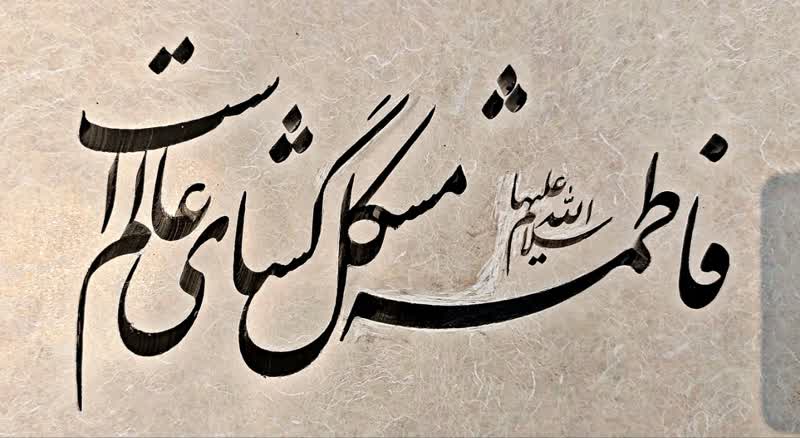 فاطمه سلام الله علیها مشکل گشای عالم است